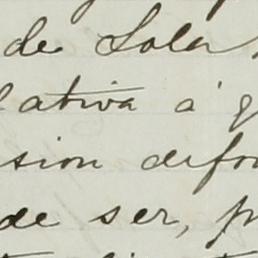 de Sola
lativa á g
sion difor
de ser, p